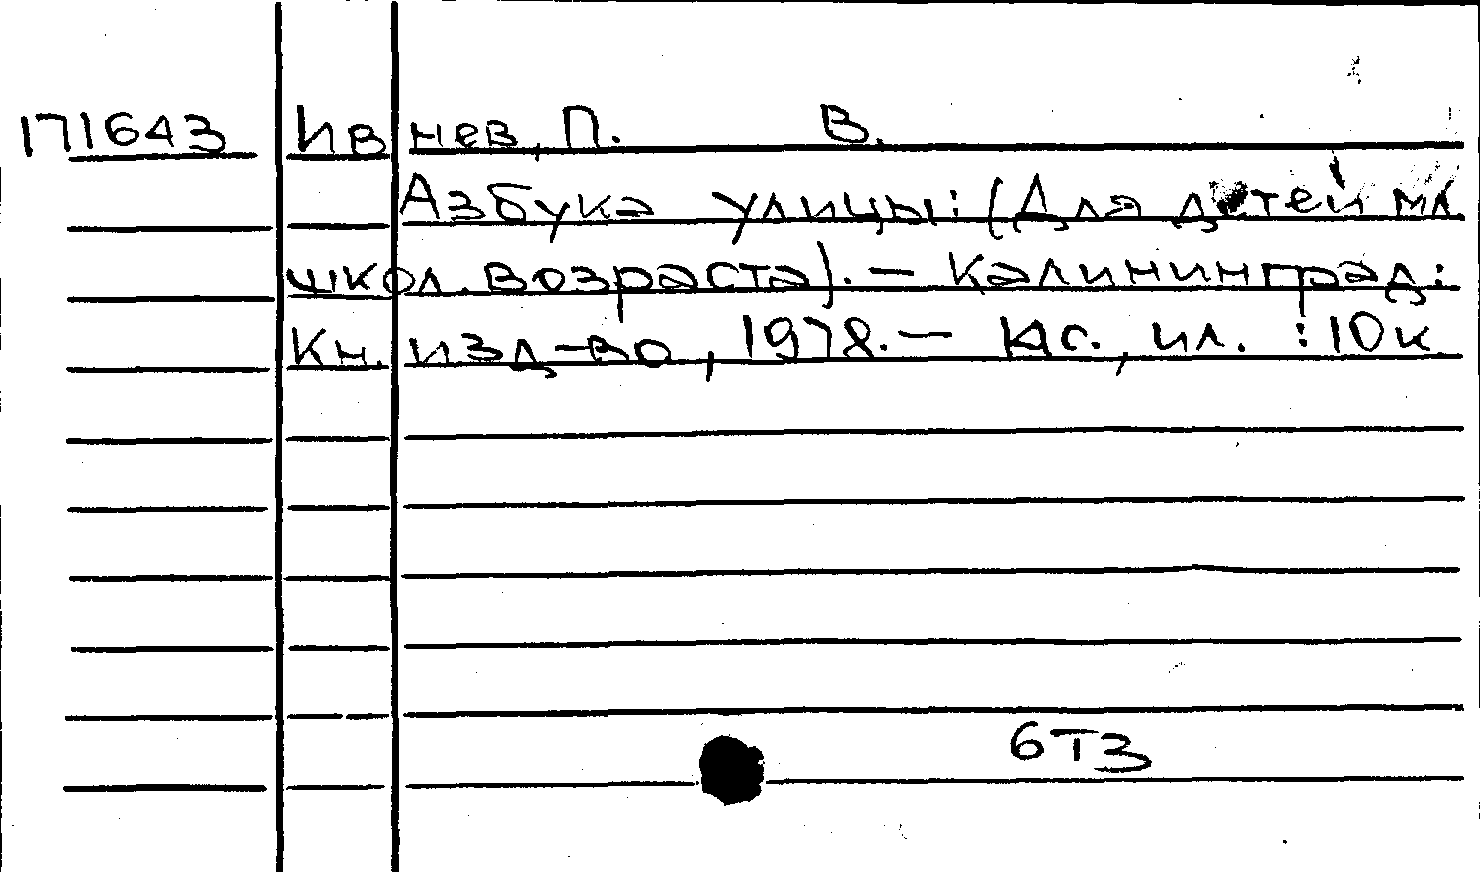 171643 Ивнев, П. В.
Азбука улицы: (Для детей мл.
школ. возраста). — Калининград:
Кн. изд-во, 1978. — с., ил. : 10 к
6Т3